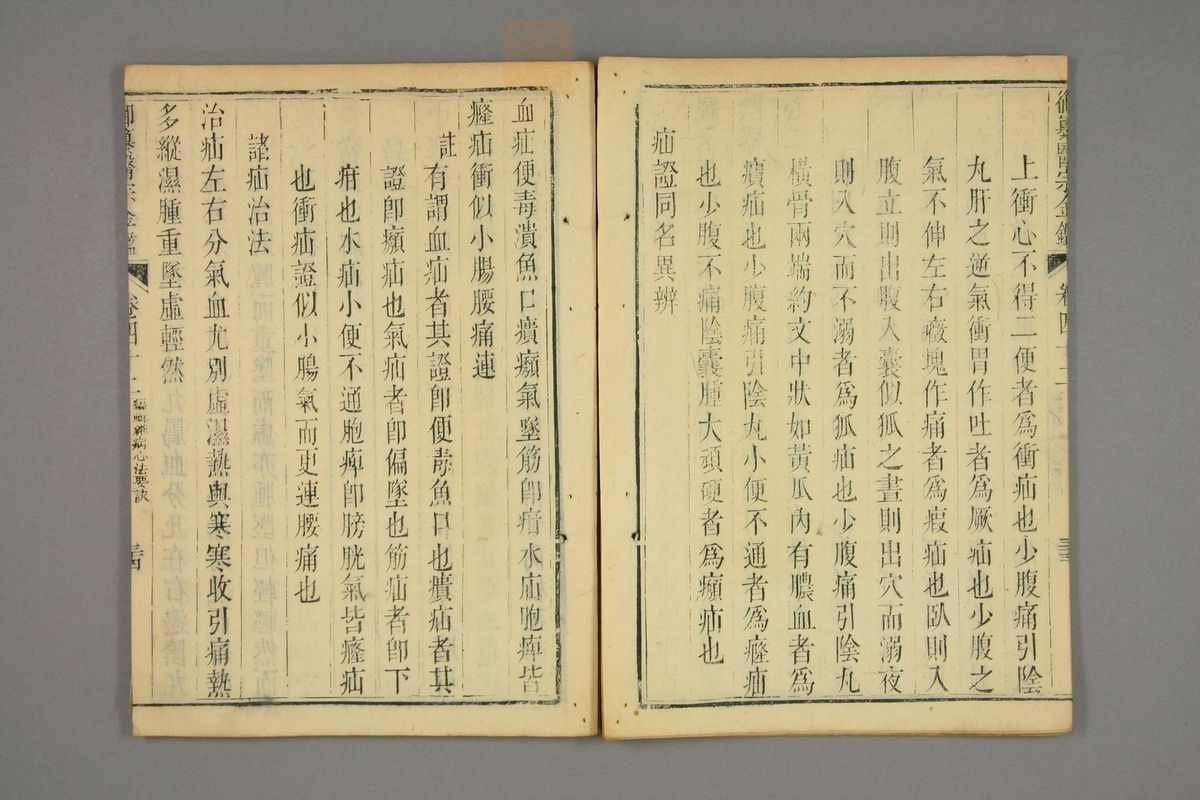 御纂醫宗金鑑
卷四十二
上衝心不得二便者爲衝疝也少腹痛引陰
丸肝之逆氣衝胃作吐者爲厥疝也少腹之
氣不伸左右癥塊作痛者爲瘕疝也臥則入
腹立則出腹入囊似狐之晝則出穴而溺夜
則入穴而不溺者爲狐疝也少腹痛引陰丸
橫骨兩端約文中狀如黃瓜內有膿血者爲
㿉疝也少腹痛引陰丸小便不通者爲癃疝
也少腹不痛陰囊腫大頑硬者爲㿗疝也
疝證同名異辨
血疝便毒潰魚口㿉㿗氣墜筋卽疳水疝胞痺皆
癃疝衝似小腸腰痛連
註有謂血疝者其證卽便毒魚口也㿉疝者其
證卽㿗疝也氣疝者卽偏墜也筋疝者卽下
疳也水疝小便不通胞痺卽膀胱氣皆癃疝
也衝疝證似小腸氣而更連腰痛也
諸疝治法
治疝左右分氣血尤別虛濕熱與寒寒收引痛熱
多縱濕腫重墜虛輕然
御纂醫宗金鑑
卷四十二
編輯雜病心法要訣
三十四